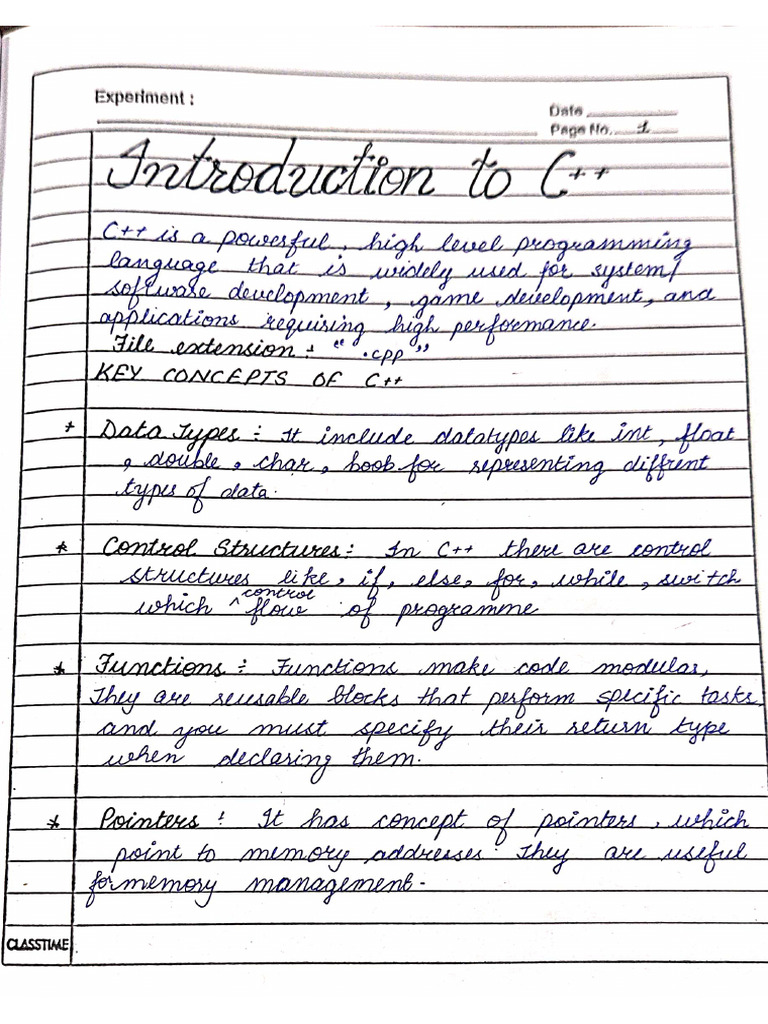 Experiment :
Date
Page No. 1
Introduction to C++
C++ is a powerful, high level programming
language that is widely used for system/
software development, game development, and
applications requiring high performance.
File extension : " .cpp "
KEY CONCEPTS OF C++
* Data Types : It include datatypes like int, float
, double, char, boob for representing diffrent
types of data.
* Control Structures : In C++ there are control
structures like, if, else, for, while, switch
which ^control flow of programme
* Functions : Functions make code modular,
They are reusable blocks that perform specific tasks,
and you must specify their return type
when declaring them.
* Pointers : It has concept of pointers, which
point to memory addresses. They are useful
for memory management.
CLASSTIME